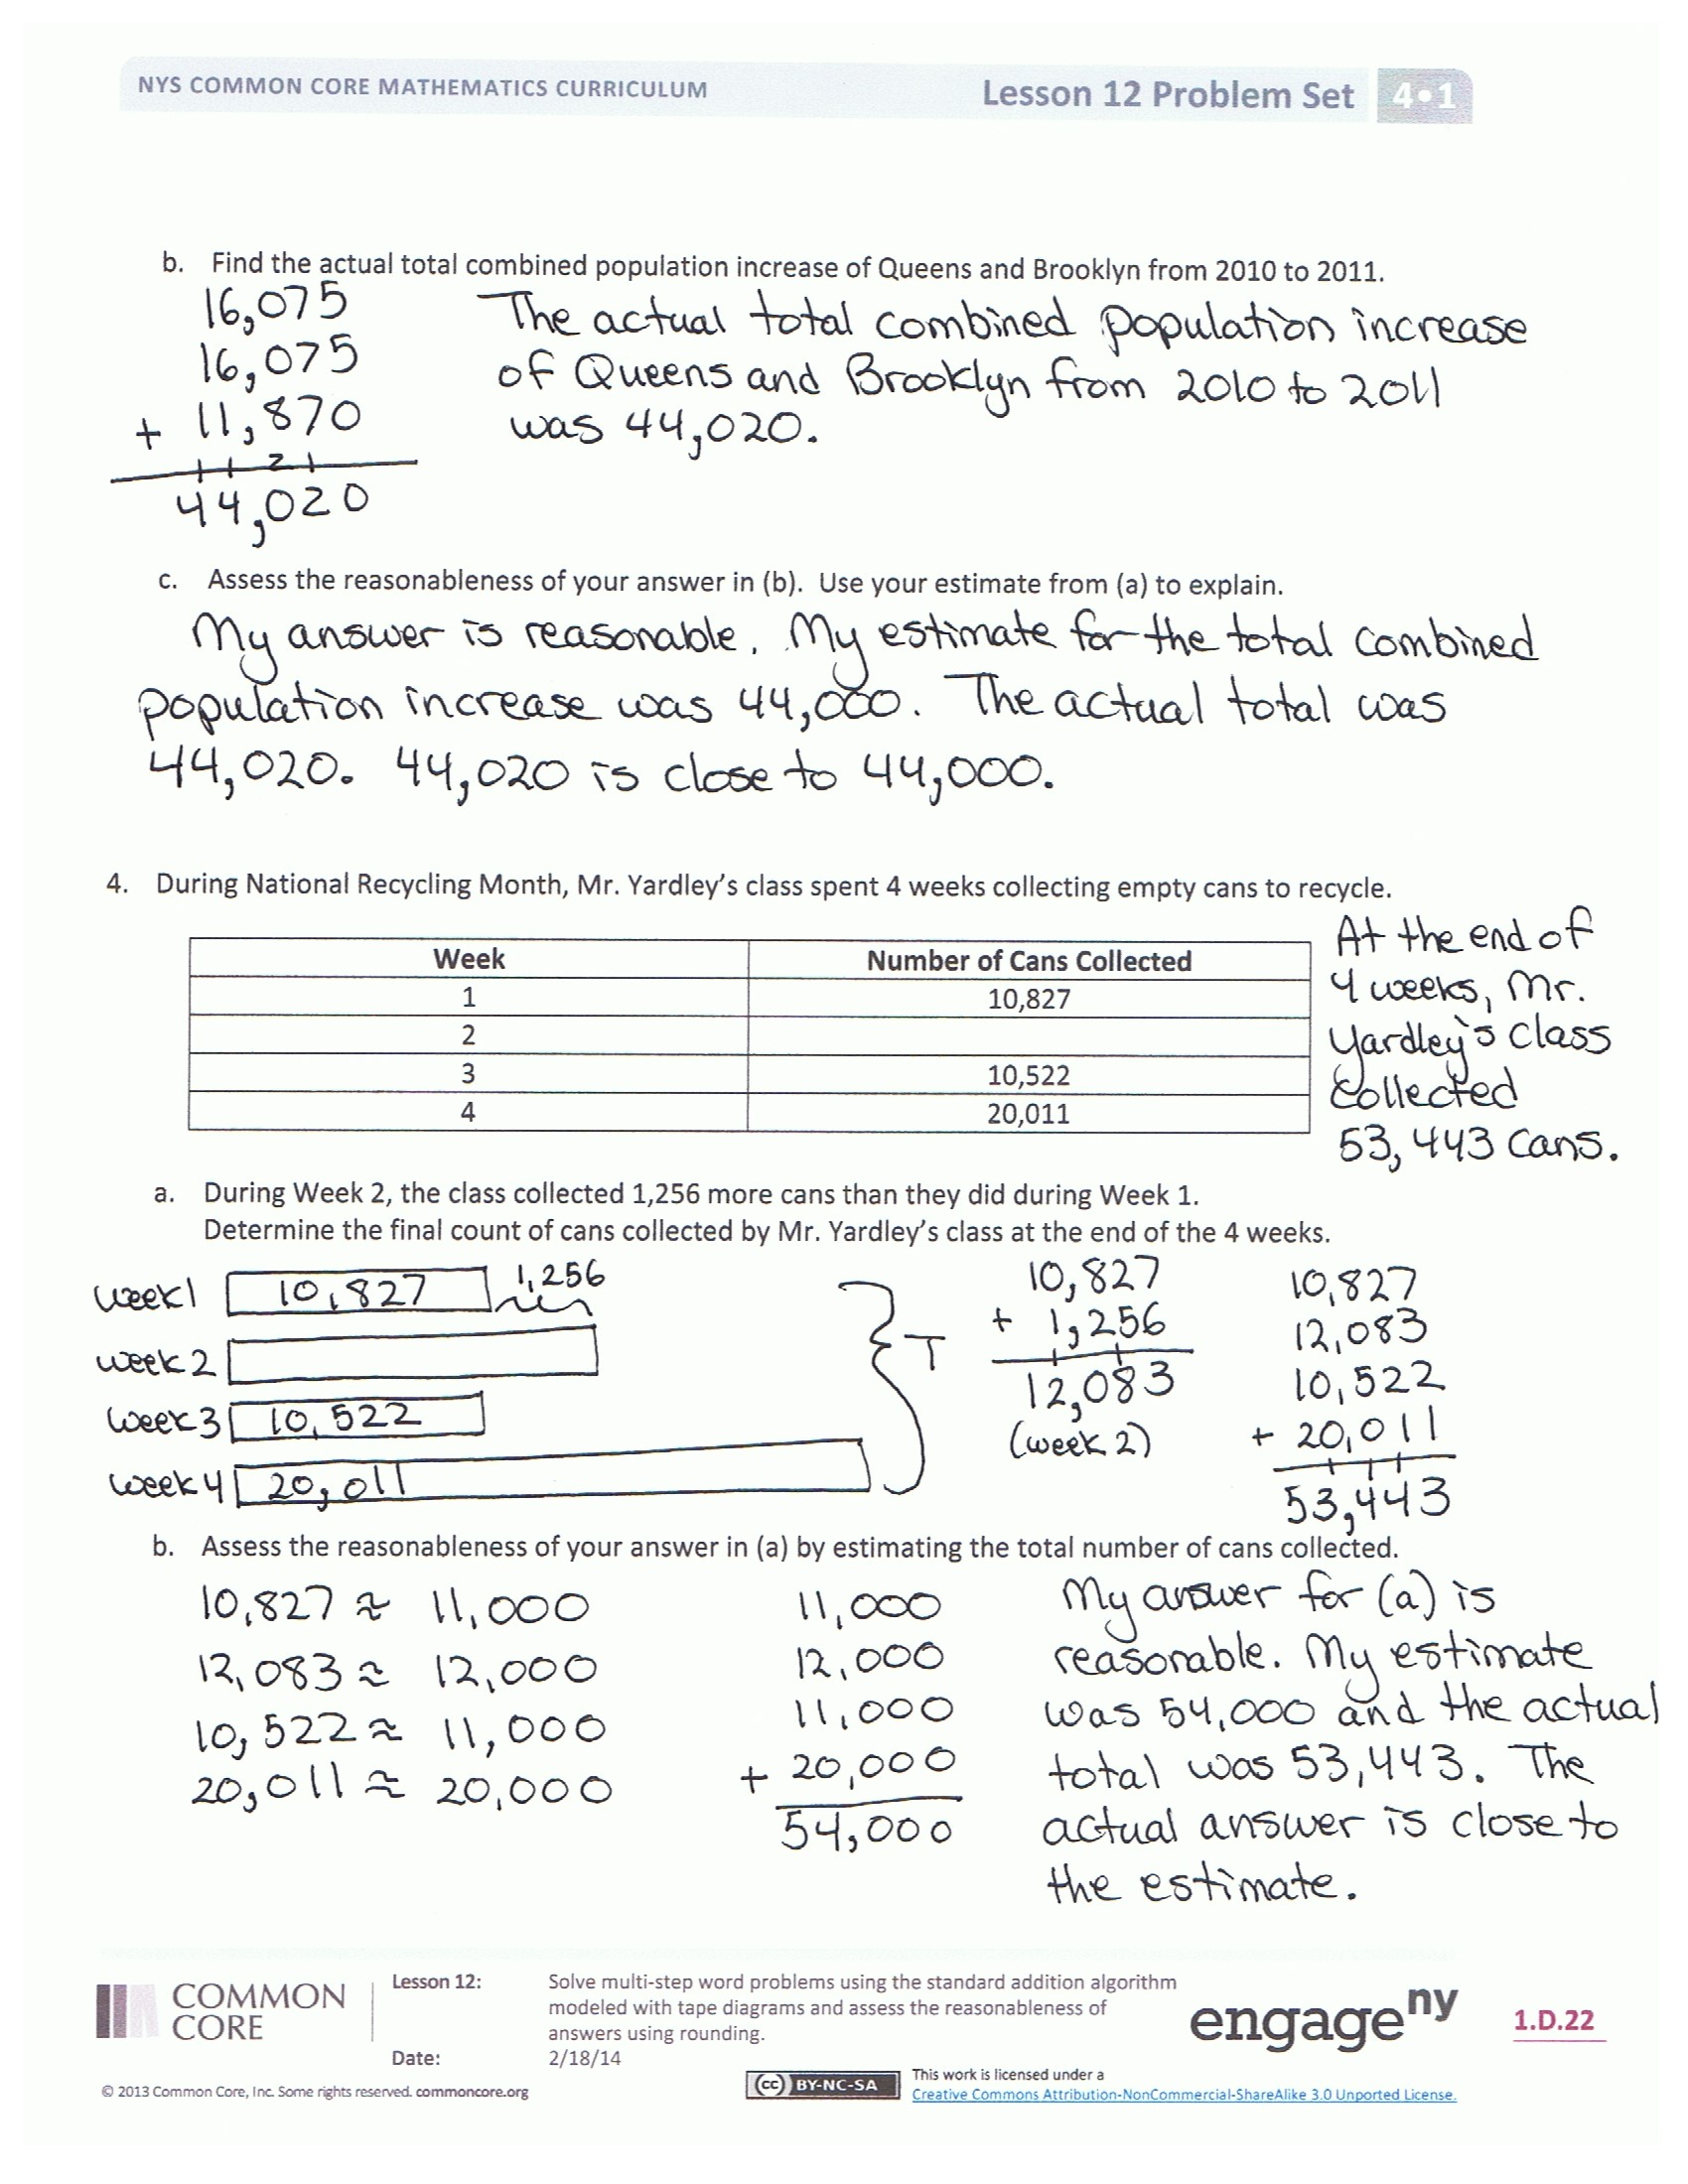 NYS COMMON CORE MATHEMATICS CURRICULUM
Lesson 12 Problem Set 4•1
b. Find the actual total combined population increase of Queens and Brooklyn from 2010 to 2011.
16,075
16,075
+ 11,870
1 1 2 1
44,020
The actual total combined population increase
of Queens and Brooklyn from 2010 to 2011
was 44,020.
c. Assess the reasonableness of your answer in (b). Use your estimate from (a) to explain.
My answer is reasonable. My estimate for the total combined
population increase was 44,000. The actual total was
44,020. 44,020 is close to 44,000.
4. During National Recycling Month, Mr. Yardley's class spent 4 weeks collecting empty cans to recycle.
Week Number of Cans Collected
1 10,827
2
3 10,522
4 20,011
At the end of
4 weeks, Mr.
Yardley's class
collected
53,443 cans.
a. During Week 2, the class collected 1,256 more cans than they did during Week 1.
Determine the final count of cans collected by Mr. Yardley's class at the end of the 4 weeks.
week 1 10,827 1,256
week 2
week 3 10,522
week 4 20,011
T
10,827
+ 1,256
1 1
12,083
(week 2)
10,827
12,083
10,522
+ 20,011
1 1 1
53,443
b. Assess the reasonableness of your answer in (a) by estimating the total number of cans collected.
10,827 ≈ 11,000
12,083 ≈ 12,000
10,522 ≈ 11,000
20,011 ≈ 20,000
11,000
12,000
11,000
+ 20,000
54,000
My answer for (a) is
reasonable. My estimate
was 54,000 and the actual
total was 53,443. The
actual answer is close to
the estimate.
COMMON
CORE
Lesson 12: Solve multi-step word problems using the standard addition algorithm
modeled with tape diagrams and assess the reasonableness of
answers using rounding.
Date: 2/18/14
engage ny
1.D.22
© 2013 Common Core, Inc. Some rights reserved. commoncore.org
(cc) BY-NC-SA
This work is licensed under a
Creative Commons Attribution-NonCommercial-ShareAlike 3.0 Unported License.